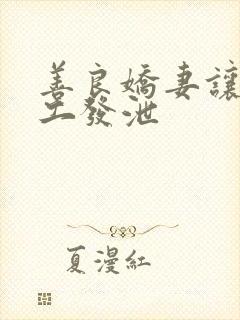 善良嬌妻讓
工發泄
夏漫紅